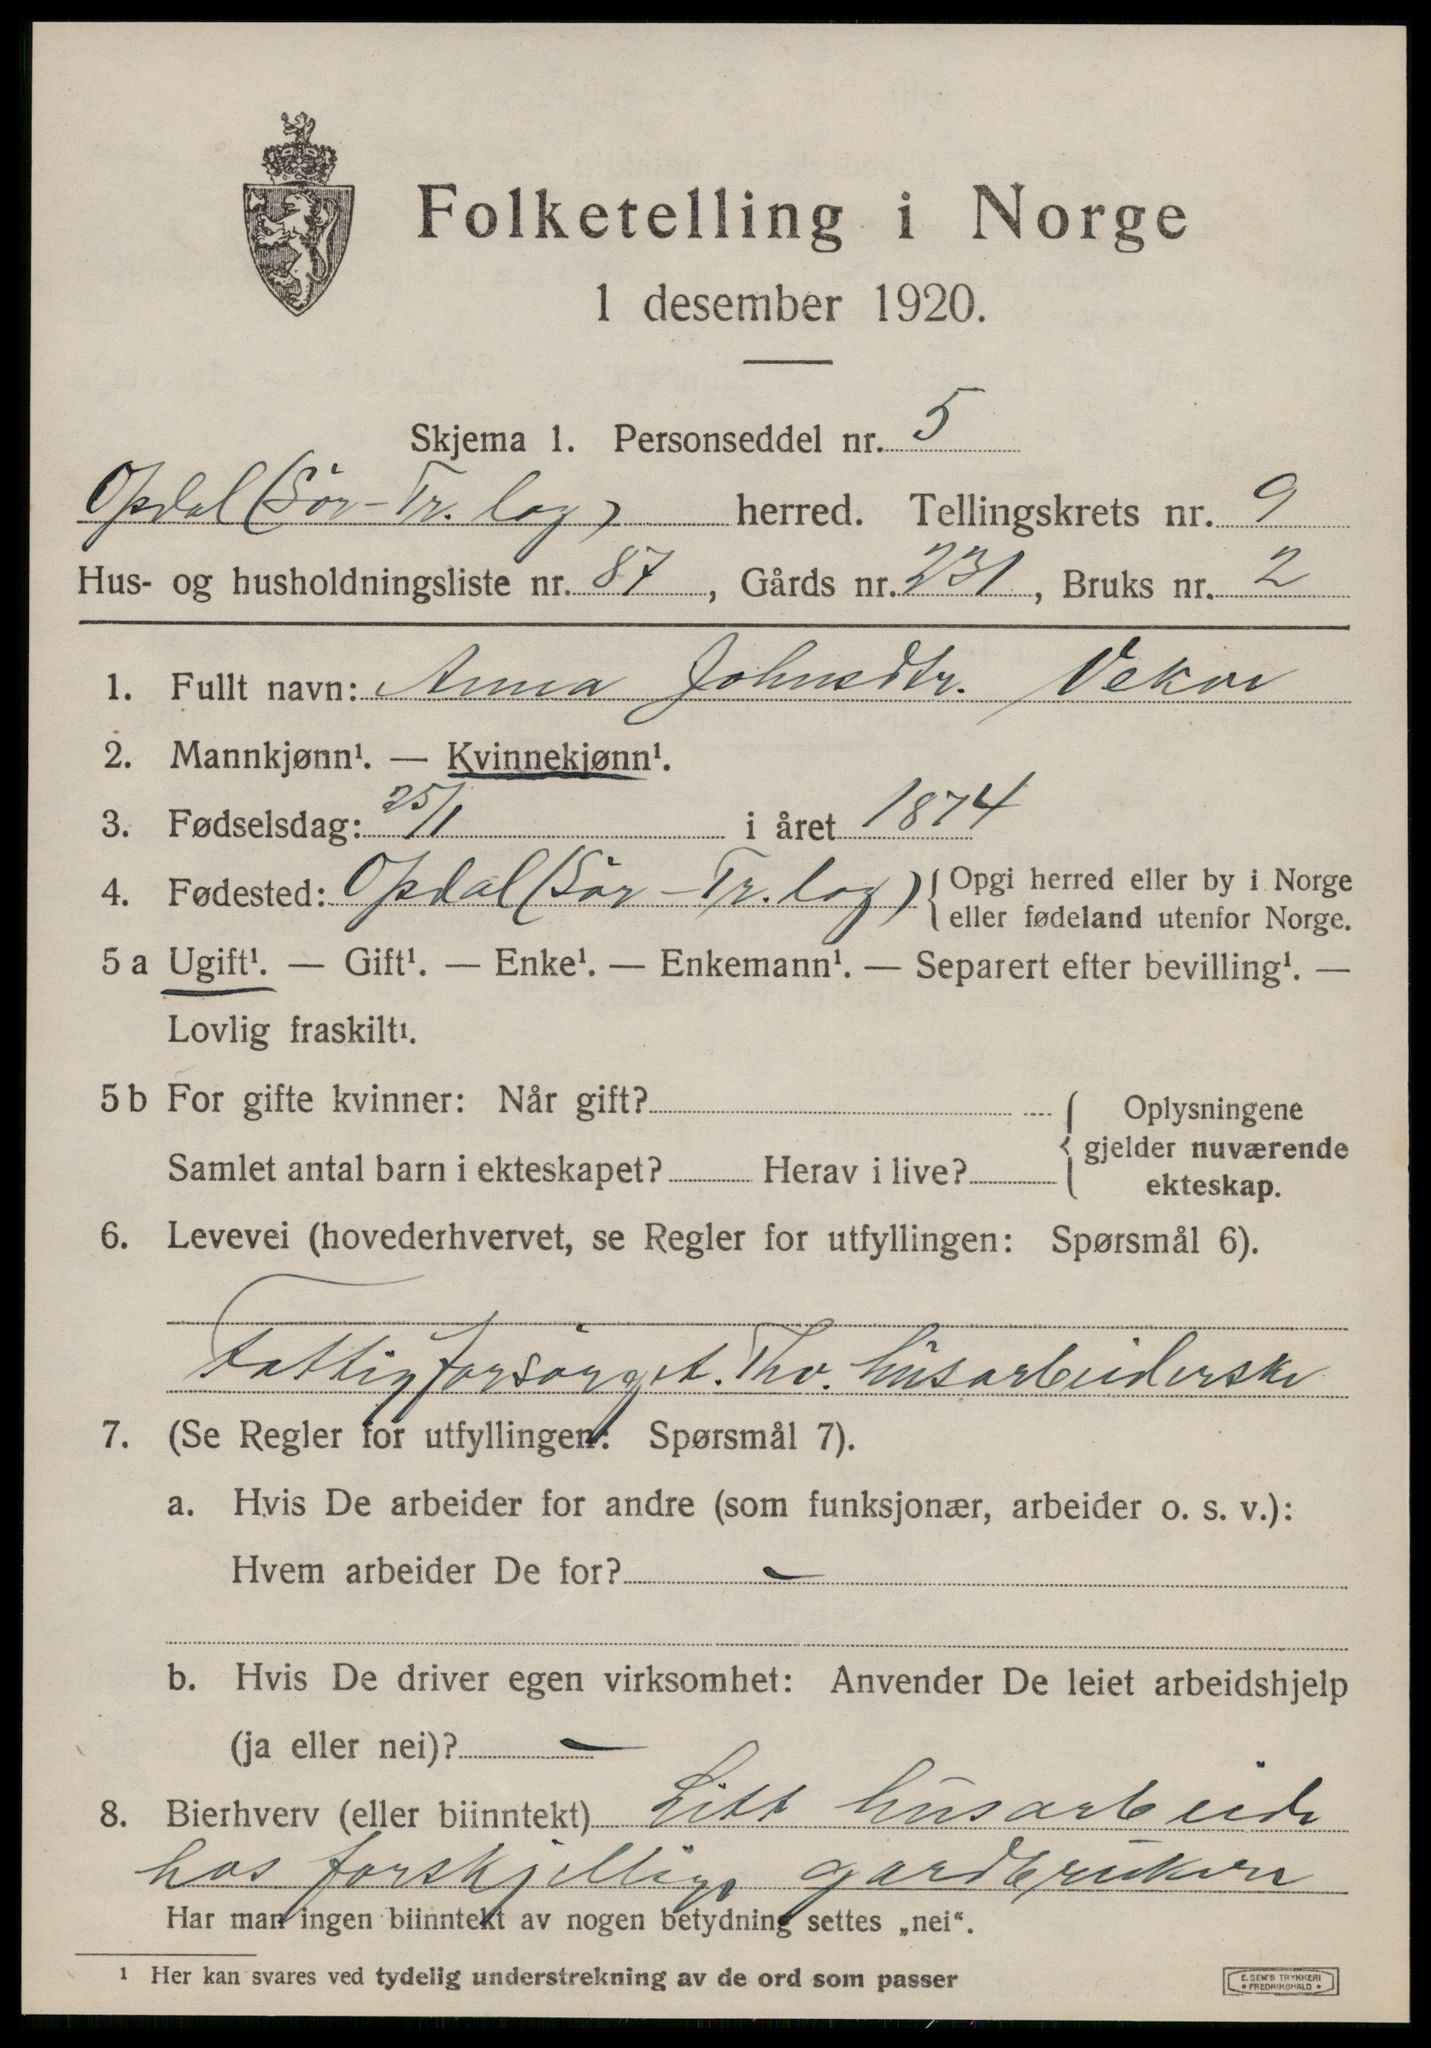 Folketelling i Norge
1 desember 1920.
Skjema 1. Personseddel nr. 5
Opdal (Sör-Tr.lag) herred. Tellingskrets nr. 9
Hus- og husholdningsliste nr. 87, Gårds nr. 231, Bruks nr. 2
1. Fullt navn: Anna Johnsdtr. Vekve
2. Mannkjønn¹. — Kvinnekjønn¹.
3. Fødselsdag: 25/1 i året 1874
4. Fødested: Opdal (Sör-Tr.lag) { Opgi herred eller by i Norge
eller fødeland utenfor Norge.
5 a Ugift¹. — Gift¹. — Enke¹. — Enkemann¹. — Separert efter bevilling¹. —
Lovlig fraskilt¹.
5 b For gifte kvinner: Når gift?
Samlet antal barn i ekteskapet? Herav i live?
Oplysningene
gjelder nuværende
ekteskap.
6. Levevei (hovederhvervet, se Regler for utfyllingen: Spørsmål 6).
Fattigforsörget. Thv. husarbeiderske
7. (Se Regler for utfyllingen: Spørsmål 7).
a. Hvis De arbeider for andre (som funksjonær, arbeider o. s. v.):
Hvem arbeider De for? -
b. Hvis De driver egen virksomhet: Anvender De leiet arbeidshjelp
(ja eller nei)? -
8. Bierhverv (eller biinntekt) Litt husarbeide
hos forskjellige gardbrukere
Har man ingen biinntekt av nogen betydning settes „nei“.
¹ Her kan svares ved tydelig understrekning av de ord som passer
E. SEM'S TRYKKERI
• FREDRIKSHALD •